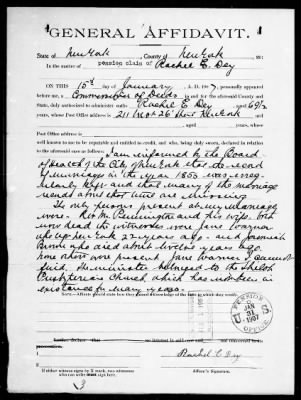 GENERAL AFFIDAVIT.
State of New York, County of New York, ss:
In the matter of pension claim of Rachel C. Dey
ON THIS 15th day of January, A. D. 1907, personally appeared
before me, a Commissioner of Deeds in and for the aforesaid County,
duly authorized to administer oaths Rachel C Dey, aged 69 1/2
years, whose Post Office address is 211 West 26" Street New York
aged years, whose
Post Office address is
well known to me to be reputable and entitled to credit, and who, being duly sworn, declared in relation
to the aforesaid case as follows:
I am informed by the Board
of Health of the City of New York that the record
of marriages in the year 1855 was irreg-
ularly kept and that many of the marriage
records about that time are missing
The only persons present at my marriage
were Rev M. Pennington and his wife, both
now dead the witnesses were Jane Warner
who up 22 years ago and Jeremiah
Bowne who died about twelve years ago.
none others were present, Jane Warner I cannot
find. The minister belonged to the Shiloh
Presbyterian Church which has not been in
existence for many years.
PENSION
JAN
31
1907
OFFICE
U S
further declare that
Rachel C. Dey
If either affiant signs by X mark, two witnesses who can write sign here.
Affiant's Signature.